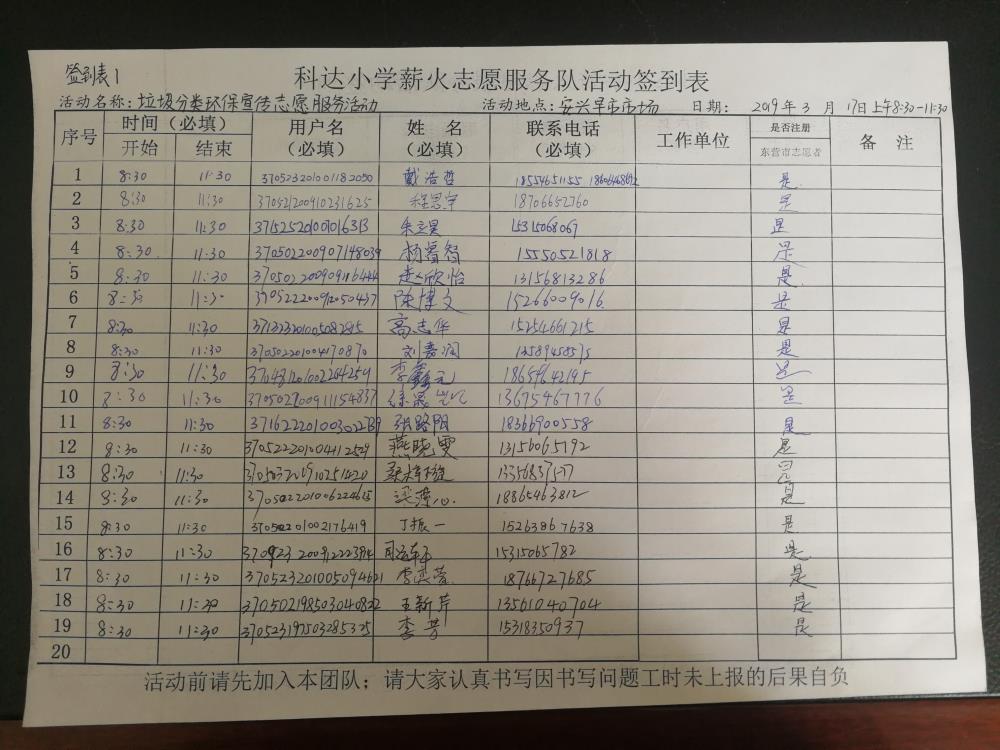 签到表1
科达小学薪火志愿服务队活动签到表
活动名称：垃圾分类环保宣传志愿服务活动 活动地点：安兴早市市场 日期： 2019年3月17日上午8:30-11:30
序号 时间（必填） 用户名（必填） 姓名（必填） 联系电话（必填） 工作单位 是否注册 备注
开始 结束 东营市志愿者
1 8:30 11:30 戴浩哲 18554651155 是
2 8:30 11:30 370521200910231625 程思宇 18706652760 是
3 8:30 11:30 15315068067 是
4 8:30 11:30 370502200907148039 杨睿智 15550521818 是
5 8:30 11:30 赵欣怡 13156813286 是
6 8:30 11:30 陈博文 15266009016 是
7 8:30 11:30 高志华 15254661215 是
8 8:30 11:30 370522201004170870 刘嘉润 是
9 8:30 11:30 李鑫元 18654642195 是
10 8:30 11:30 370502200911154837 13675467776 是
11 8:30 11:30 张路阳 18366900558 是
12 8:30 11:30 370522201004112529 燕晓雯 13156065792 是
13 8:30 11:30 是
14 8:30 11:30 18865463812 是
15 8:30 11:30 370502201002176419 丁振一 15263867638 是
16 8:30 11:30 15315065782 是
17 8:30 11:30 370523201005094621 18766727685 是
18 8:30 11:30 王新芹 13561040704 是
19 8:30 11:30 370523197503285325 李芳 15318350937 是
20
活动前请先加入本团队；请大家认真书写因书写问题工时未上报的后果自负